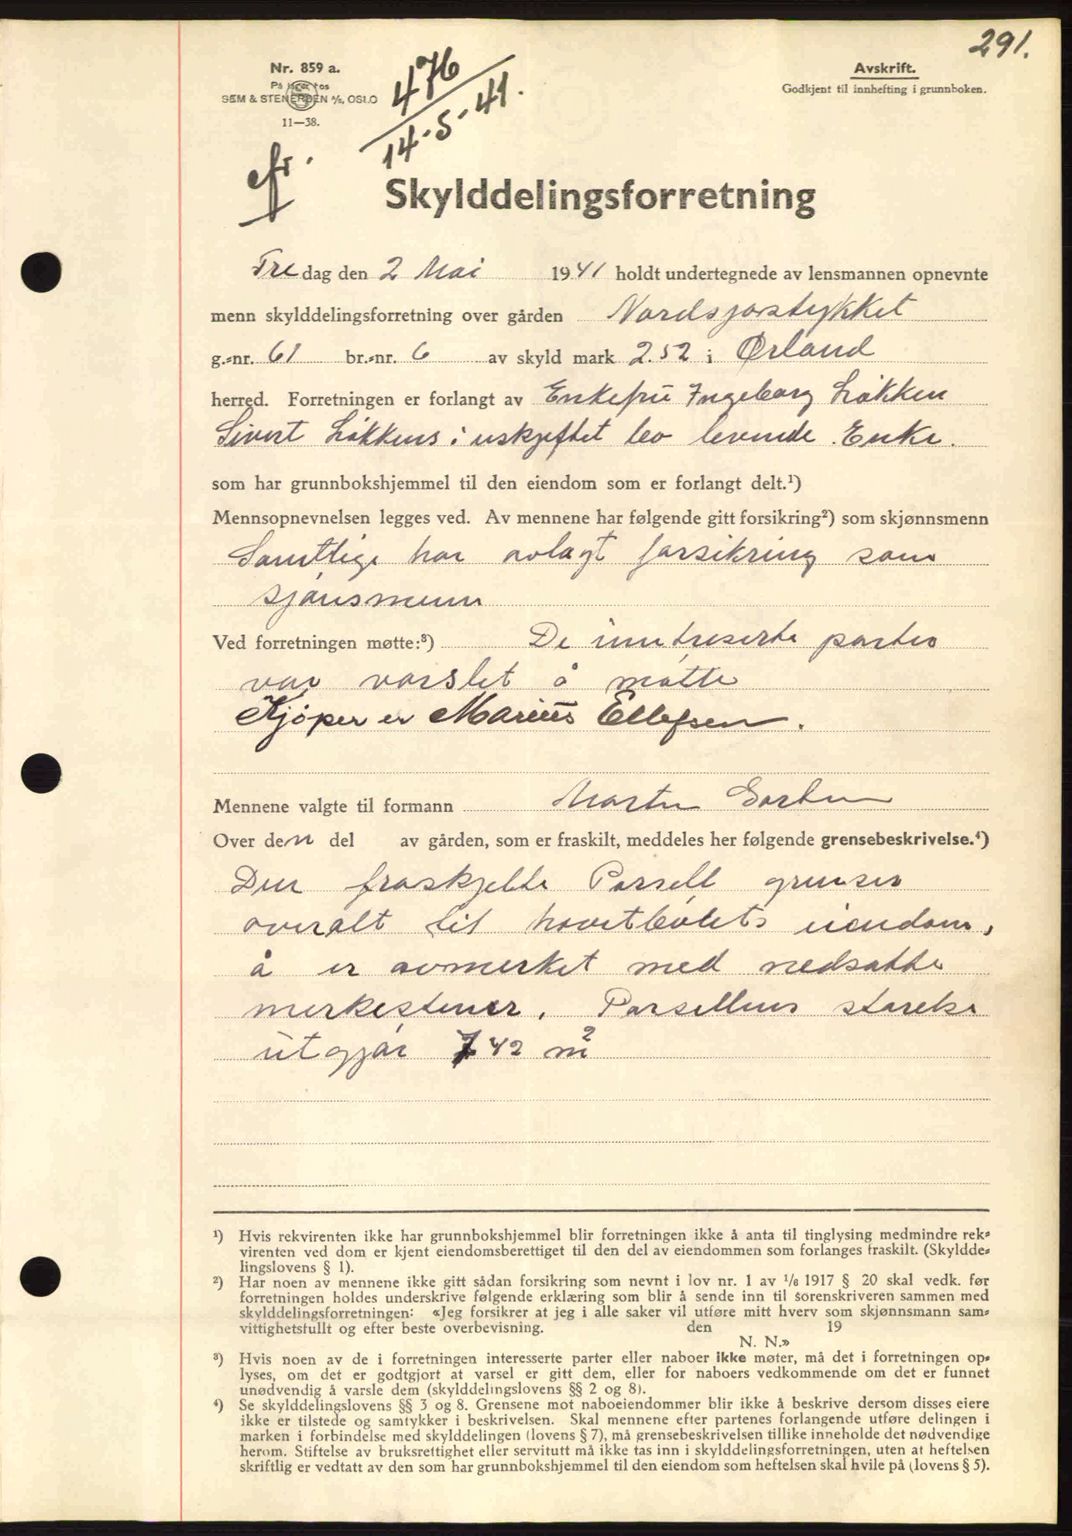 291.
Nr. 859 a.
På lager hos
SEM & STENERSEN A/S, OSLO
11—38.
476
14-5-41.
Avskrift.
Godkjent til innhefting i grunnboken.
efr.
Skylddelingsforretning
Fredag den 2 Mai 1941 holdt undertegnede av lensmannen opnevnte
menn skylddelingsforretning over gården Nordsjorstykket
g.-nr. 61 br.-nr. 6 av skyld mark 2.52 i Ørland
herred. Forretningen er forlangt av Enkefru Ingeborg Løkken
Sivert Løkkens i uskjeftet bo levende Enke.
som har grunnbokshjemmel til den eiendom som er forlangt delt.¹)
Mennsopnevnelsen legges ved. Av mennene har følgende gitt forsikring²) som skjønnsmenn
Samtlige har avlagt forsikring som
sjønsmenn
Ved forretningen møtte:³) De inntreserte parter
var varslet å møtte
Kjøper er Marius Ellefsen.
Mennene valgte til formann Martin
Over den del av gården, som er fraskilt, meddeles her følgende grensebeskrivelse.⁴)
Den fraskjelte Parsell grenser
overalt til hovetbølets eiendom,
å er avmerket med nedsatte
merkestener. Parsellens størelse
utgjør 742 m²
¹) Hvis rekvirenten ikke har grunnbokshjemmel blir forretningen ikke å anta til tinglysing medmindre rek-
virenten ved dom er kjent eiendomsberettiget til den del av eiendommen som forlanges fraskilt. (Skyldde-
lingslovens § 1).
²) Har noen av mennene ikke gitt sådan forsikring som nevnt i lov nr. 1 av 1/6 1917 § 20 skal vedk. før
forretningen holdes underskrive følgende erklæring som blir å sende inn til sorenskriveren sammen med
skylddelingsforretningen: «Jeg forsikrer at jeg i alle saker vil utføre mitt hverv som skjønnsmann sam-
vittighetsfullt og efter beste overbevisning. den 19
N. N.»
³) Hvis noen av de i forretningen interesserte parter eller naboer ikke møter, må det i forretningen op-
lyses, om det er godtgjort at varsel er gitt dem, eller for naboers vedkommende om det er funnet
unødvendig å varsle dem (skylddelingslovens §§ 2 og 8).
⁴) Se skylddelingslovens §§ 3 og 8. Grensene mot naboeiendommer blir ikke å beskrive dersom disses eiere
ikke er tilstede og samtykker i beskrivelsen. Skal mennene efter partenes forlangende utføre delingen i
marken i forbindelse med skylddelingen (lovens § 7), må grensebeskrivelsen tillike inneholde det nødvendige
herom. Stiftelse av bruksrettighet eller servitutt må ikke tas inn i skylddelingsforretningen, uten at heftelsen
skriftlig er vedtatt av den som har grunnbokshjemmel til den eiendom som heftelsen skal hvile på (lovens § 5).